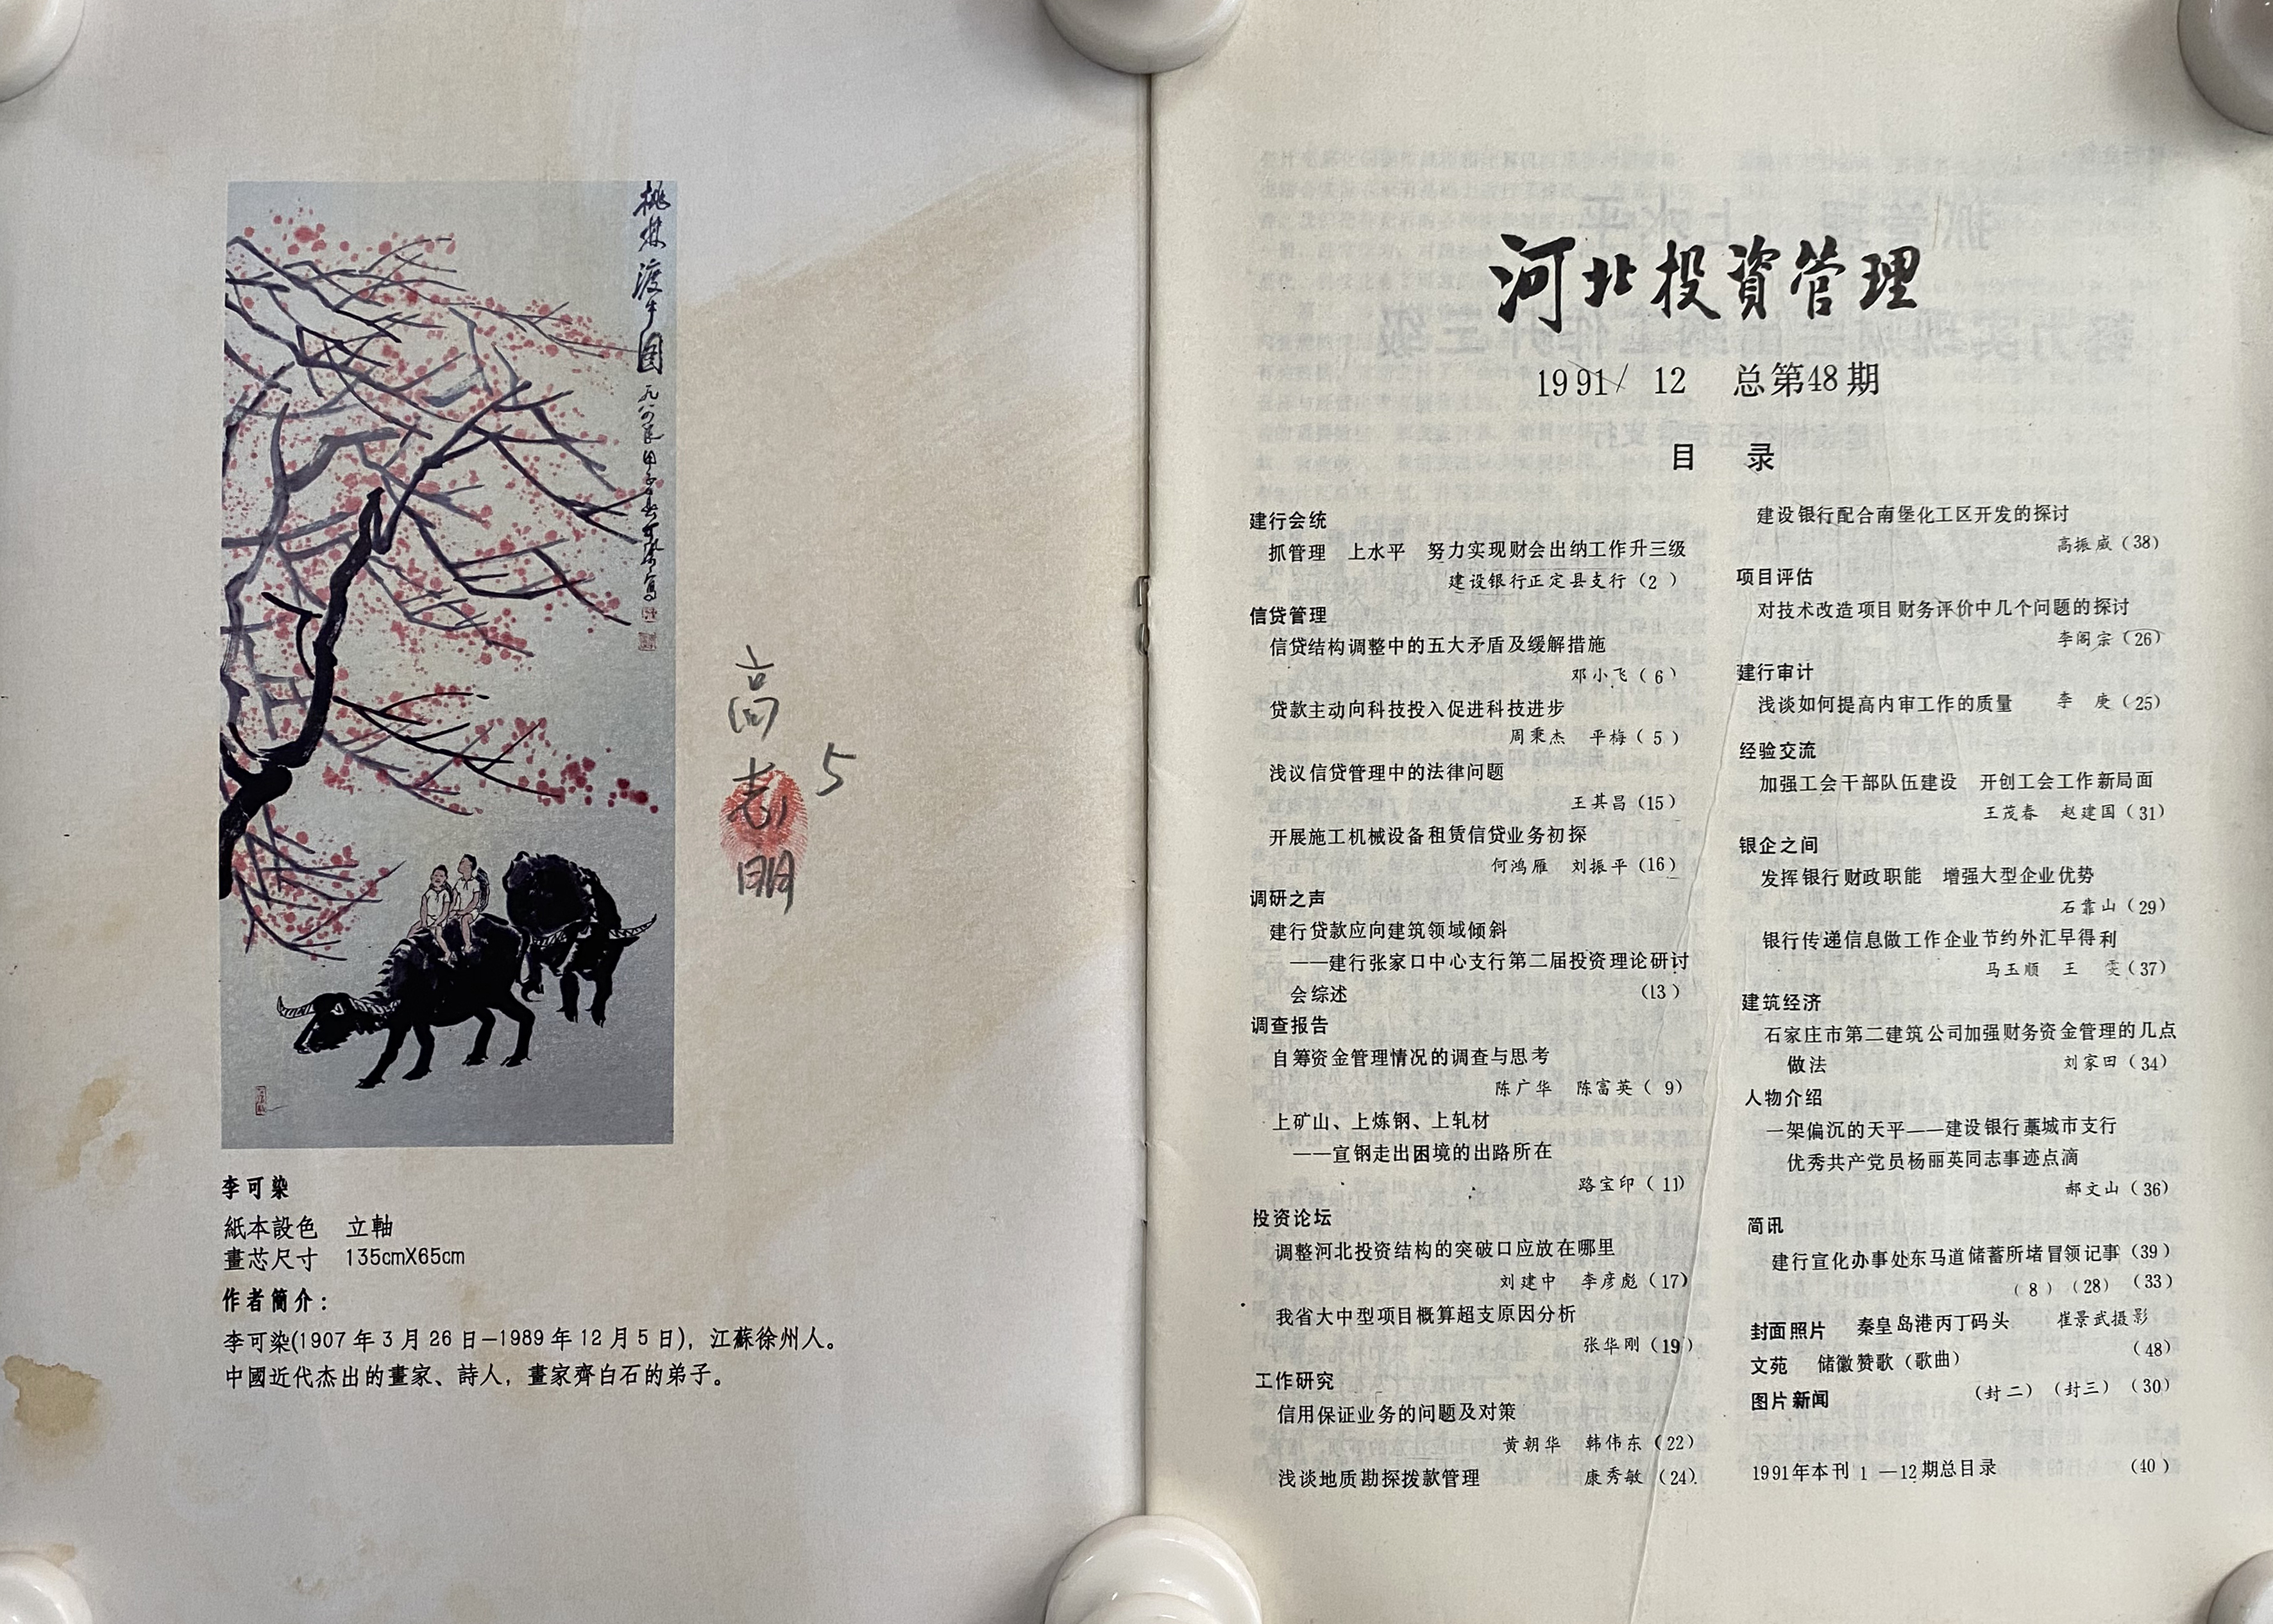 桃林渡牛圖
李可染
紙本設色 立軸
畫芯尺寸 135cmX65cm
作者簡介：
李可染(1907年3月26日—1989年12月5日)，江蘇徐州人。
中國近代杰出的畫家、詩人，畫家齊白石的弟子。
高志明
5
河北投資管理
1991/ 12 总第48期
目 录
建行会统
抓管理 上水平 努力实现财会出纳工作升三级
建设银行正定县支行（2）
信贷管理
信贷结构调整中的五大矛盾及缓解措施
邓小飞（6）
贷款主动向科技投入促进科技进步
周秉杰 平梅（5）
浅议信贷管理中的法律问题
王其昌（15）
开展施工机械设备租赁信贷业务初探
何鸿雁 刘振平（16）
调研之声
建行贷款应向建筑领域倾斜
——建行张家口中心支行第二届投资理论研讨
会综述 （13）
调查报告
自筹资金管理情况的调查与思考
陈广华 陈富英（9）
上矿山、上炼钢、上轧材
——宣钢走出困境的出路所在
路宝印（11）
投资论坛
调整河北投资结构的突破口应放在哪里
刘建中 李彦彪（17）
我省大中型项目概算超支原因分析
张华刚（19）
工作研究
信用保证业务的问题及对策
黄朝华 韩伟东（22）
浅谈地质勘探拨款管理 康秀敏（24）
建设银行配合南堡化工区开发的探讨
高振威（38）
项目评估
对技术改造项目财务评价中几个问题的探讨
李阁宗（26）
建行审计
浅谈如何提高内审工作的质量 李 庚（25）
经验交流
加强工会干部队伍建设 开创工会工作新局面
王茂春 赵建国（31）
银企之间
发挥银行财政职能 增强大型企业优势
石靠山（29）
银行传递信息做工作企业节约外汇早得利
马玉顺 王 雯（37）
建筑经济
石家庄市第二建筑公司加强财务资金管理的几点
做法 刘家田（34）
人物介绍
一架偏沉的天平——建设银行藁城市支行
优秀共产党员杨丽英同志事迹点滴
郝文山（36）
简讯
建行宣化办事处东马道储蓄所堵冒领记事（39）
（8）（28）（33）
封面照片 秦皇岛港丙丁码头 崔景武摄影
文苑 储徽赞歌（歌曲） （48）
图片新闻 （封二）（封三）（30）
1991年本刊1—12期总目录 （40）